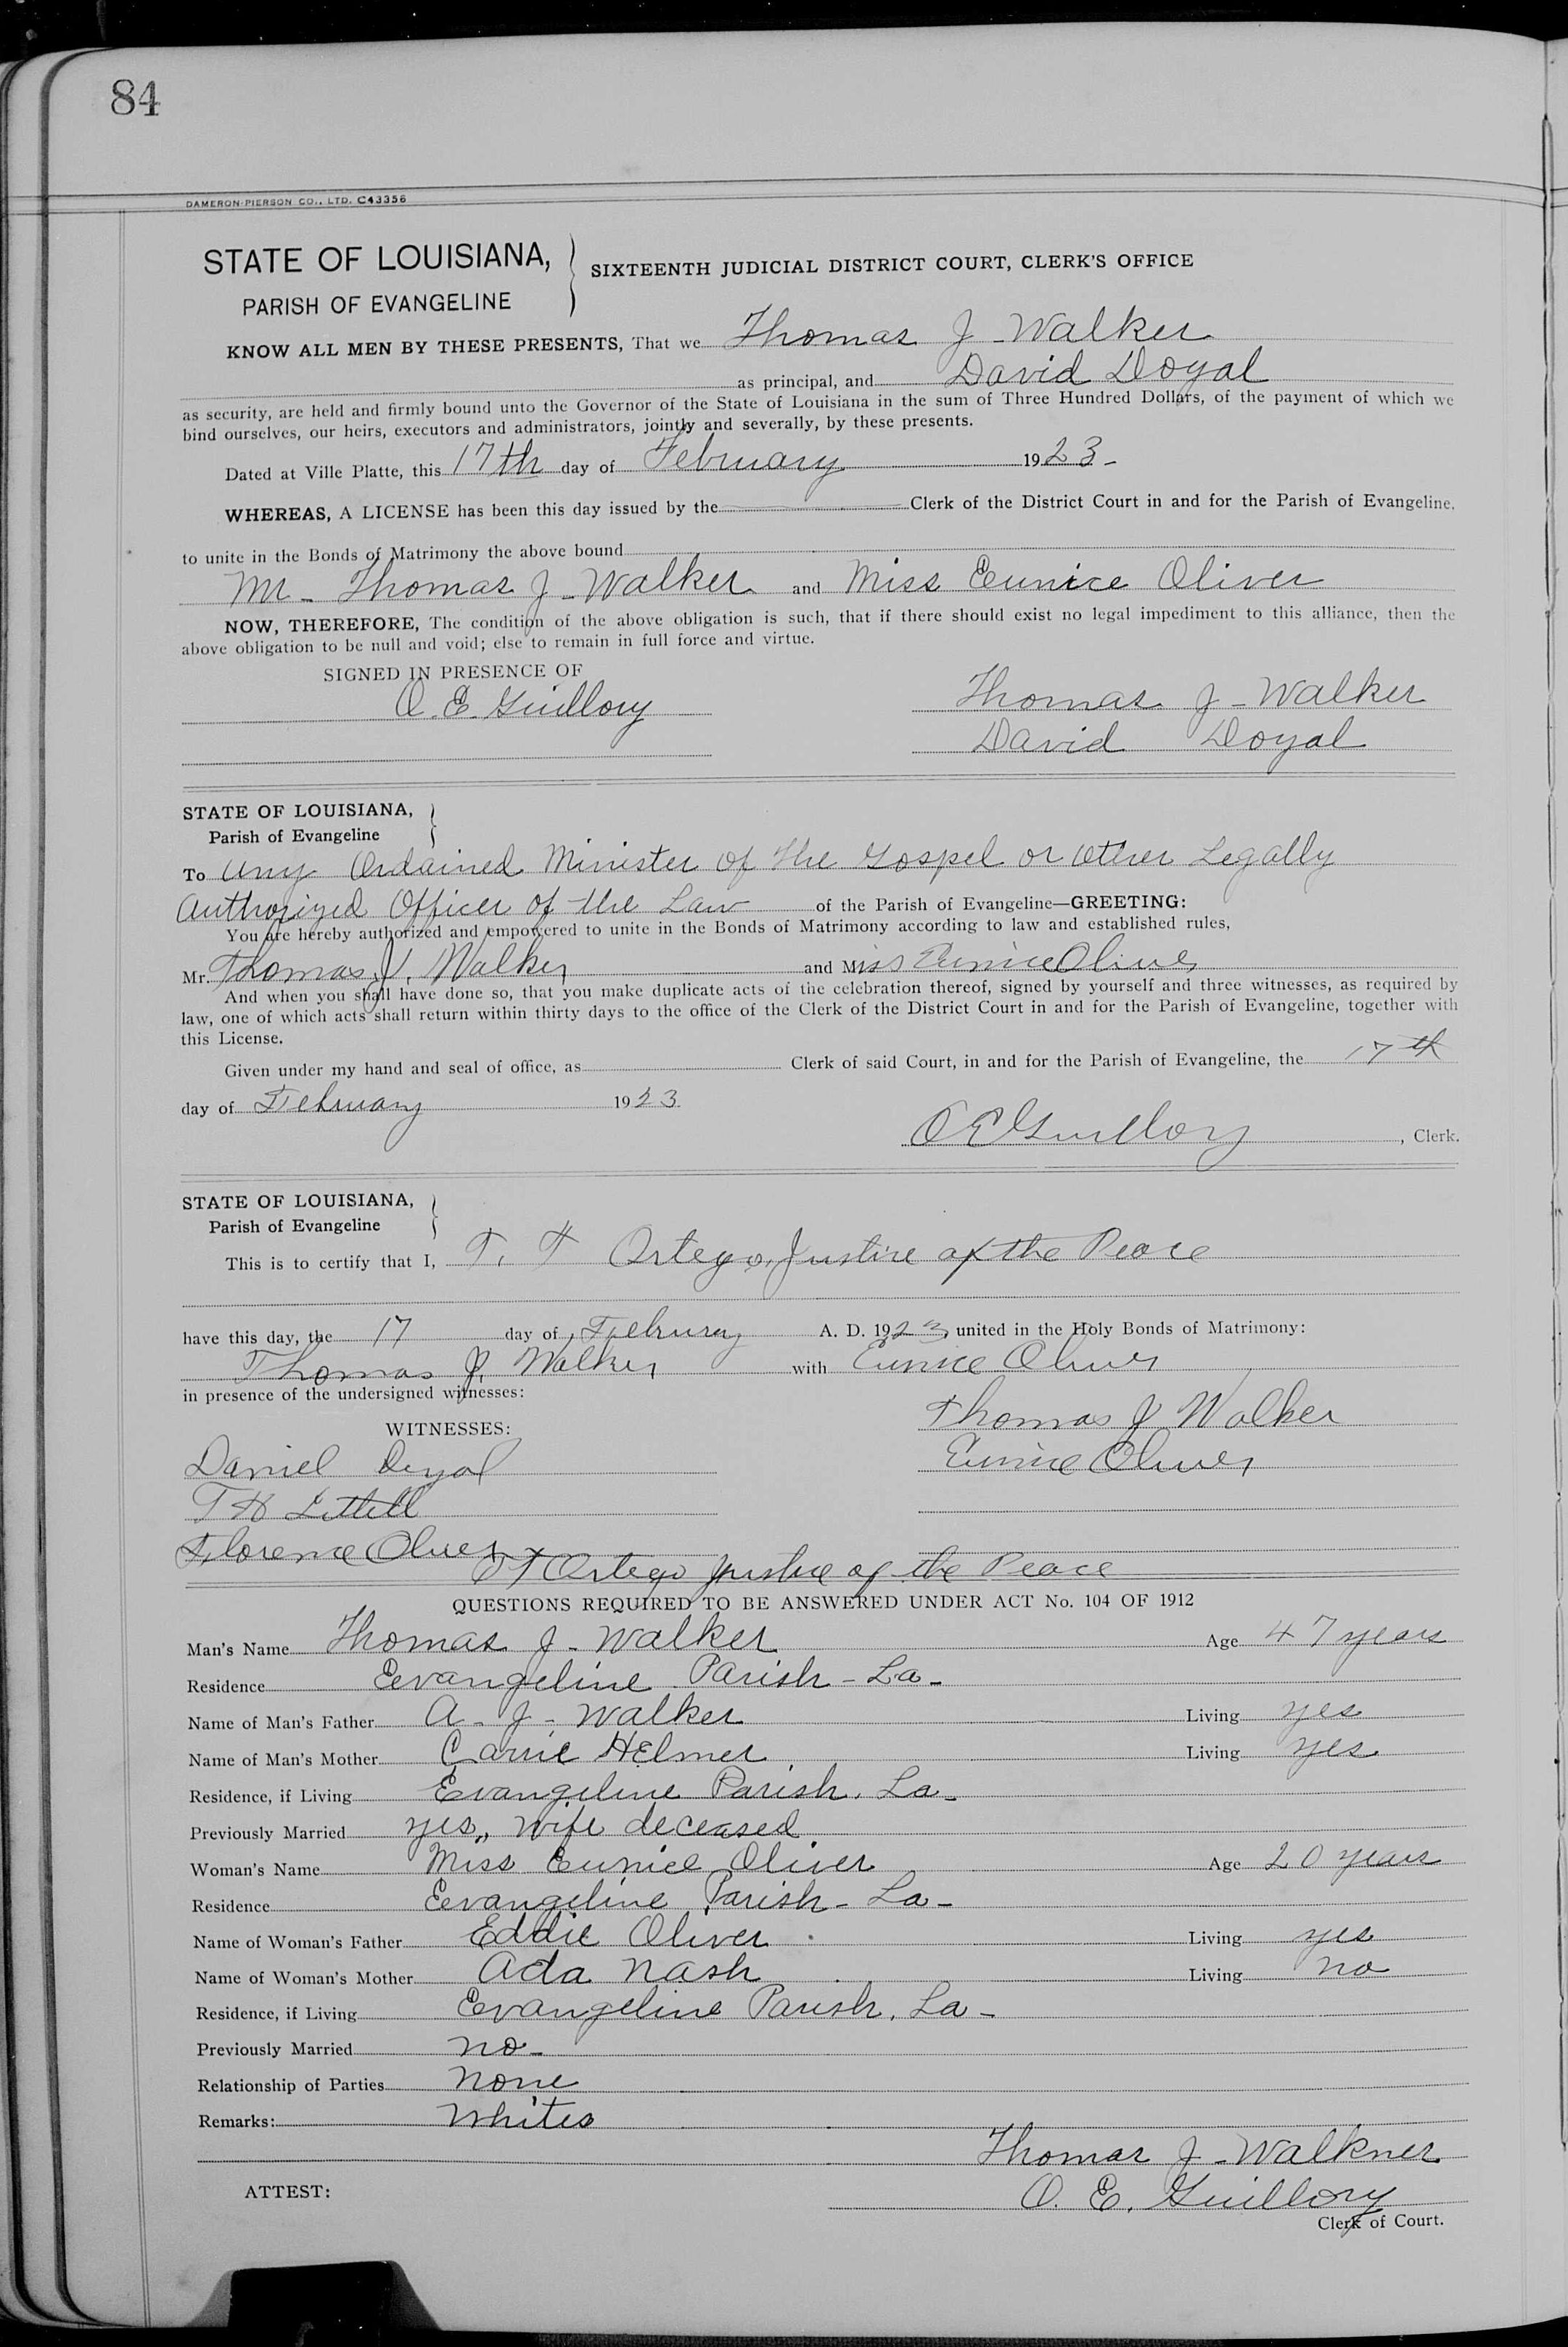 84
DAMERON-PIERSON CO., LTD. C43356
STATE OF LOUISIANA,
PARISH OF EVANGELINE
SIXTEENTH JUDICIAL DISTRICT COURT, CLERK'S OFFICE
KNOW ALL MEN BY THESE PRESENTS, That we Thomas J - Walker
as principal, and David Doyal
as security, are held and firmly bound unto the Governor of the State of Louisiana in the sum of Three Hundred Dollars, of the payment of which we
bind ourselves, our heirs, executors and administrators, jointly and severally, by these presents.
Dated at Ville Platte, this 17th day of February 1923 -
WHEREAS, A LICENSE has been this day issued by the Clerk of the District Court in and for the Parish of Evangeline,
to unite in the Bonds of Matrimony the above bound
Mr - Thomas J - Walker and Miss Eunice Oliver
NOW, THEREFORE, The condition of the above obligation is such, that if there should exist no legal impediment to this alliance, then the
above obligation to be null and void; else to remain in full force and virtue.
SIGNED IN PRESENCE OF
O. E. Guillory Thomas J - Walker
David Doyal
STATE OF LOUISIANA,
Parish of Evangeline
To any Ordained Minister of the Gospel or other Legally
Authorized Officer of the Law of the Parish of Evangeline—GREETING:
You are hereby authorized and empowered to unite in the Bonds of Matrimony according to law and established rules,
Mr. Thomas J. Walker and Miss Eunice Oliver
And when you shall have done so, that you make duplicate acts of the celebration thereof, signed by yourself and three witnesses, as required by
law, one of which acts shall return within thirty days to the office of the Clerk of the District Court in and for the Parish of Evangeline, together with
this License.
Given under my hand and seal of office, as Clerk of said Court, in and for the Parish of Evangeline, the 17th
day of February 1923
O E Guillory, Clerk.
STATE OF LOUISIANA,
Parish of Evangeline
This is to certify that I, T. F Ortego, Justice of the Peace
have this day, the 17 day of February A. D. 1923, united in the Holy Bonds of Matrimony:
Thomas J. Walker with Eunice Oliver
in presence of the undersigned witnesses:
Thomas J Walker
WITNESSES:
Daniel Eunice Oliver
T H Littell
Florence Oliver
Ortego Justice of the Peace
QUESTIONS REQUIRED TO BE ANSWERED UNDER ACT No. 104 OF 1912
Man's Name Thomas J - Walker Age 47 years
Residence Evangeline Parish - La -
Name of Man's Father A - J - Walker Living yes
Name of Man's Mother Carrie Helmer Living yes
Residence, if Living Evangeline Parish, La -
Previously Married yes, wife deceased
Woman's Name Miss Eunice Oliver Age 20 years
Residence Evangeline Parish - La -
Name of Woman's Father Eddie Oliver Living yes
Name of Woman's Mother Ada Nash Living no
Residence, if Living Evangeline Parish, La -
Previously Married no -
Relationship of Parties None
Remarks: Whites
Thomas J - Walkner
ATTEST: O. E. Guillory
Clerk of Court.